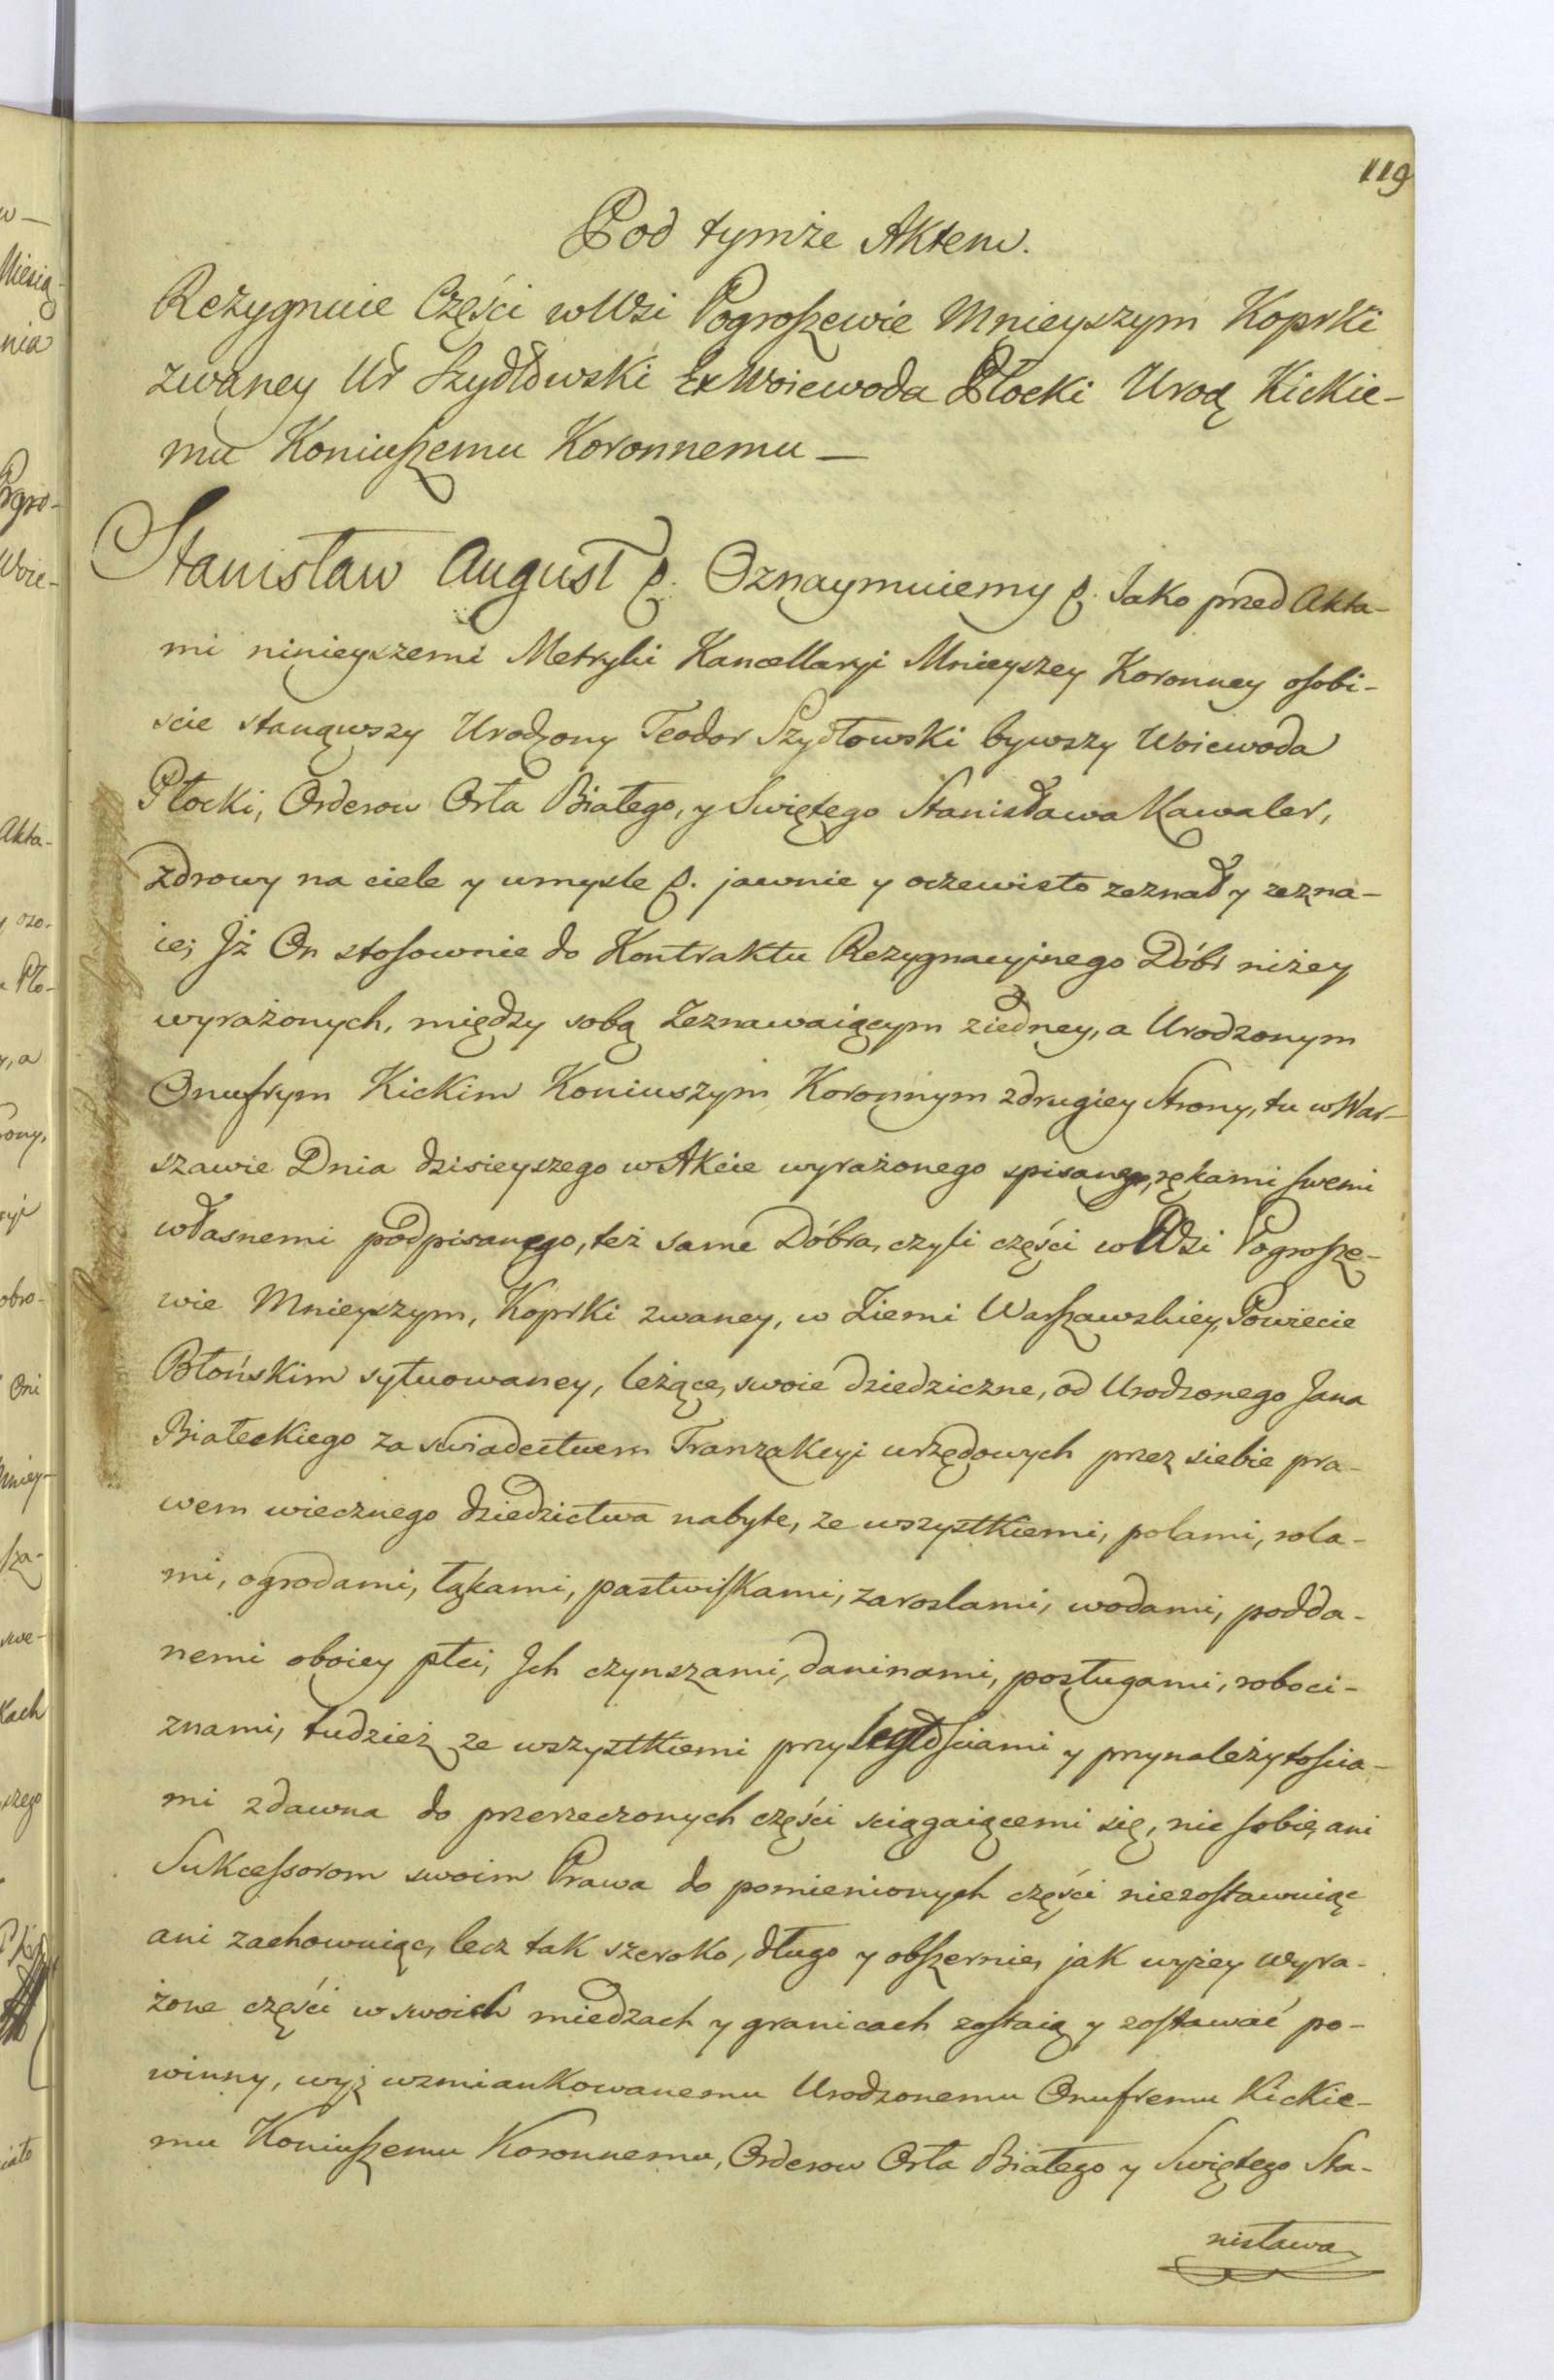 119
Pod tymże Aktem.
Rezygnuie Części w Wsi Pogroszewie Mnieyszym Koprki
zwaney Ur Szydłowski Ex Woiewoda Płocki Urodz Kickie-
mu Koniuszemu Koronnemu —
Stanisław August p. Oznaymuiemy p. Jako przed Akta-
mi ninieyszemi Metryki Kancellaryi Mnieyszey Koronney osobi-
ście stanąwszy Urodzony Teodor Szydłowski bywszy Woiewoda
Płocki, Orderow Orła Białego, y Swiętego Stanisława Kawaler,
zdrowy na ciele y umysle p. jawnie y oczewisto zeznał y zezna-
ie; Jż On stosownie do Kontraktu Rezygnacyinego Dóbr niżey
wyrażonych, między sobą Zeznawaiącym ziedney, a Urodzonym
Onufrym Kickim Koniuszym Koronnym zdrugiey Strony, tu w War-
szawie Dnia dzisieyszego w Akcie wyrażonego spisanego, rękami swemi
własnemi podpisanego, też same Dóbra, czyli części w Wsi Pogrosze-
wie Mnieyszym, Koprki zwaney, w Ziemi Warszawskiey, Powiecie
Błońskim sytuowaney, leżące, swoie dziedziczne, od Urodzonego Jana
Białeckiego za swiadectwem Tranzakcyi urzędowych przez siebie pra-
wem wiecznego dziedzictwa nabyte, ze wszystkiemi, polami, rola-
mi, ogrodami, łąkami, pastwiskami, zaroslami, wodami, podda-
nemi oboiey płci, Jch czynszami, daninami, posługami, roboci-
znami, tudzież ze wszystkiemi przyległosciami y przynależytoscia-
mi zdawna do przerzeczonych części sciągaiącemi się, nic sobie, ani
Sukcessorom swoim Prawa do pomienionych części niezostawuiąc
ani zachowuiąc, lecz tak szeroko, długo y obszernie, jak wyżey wyra-
żone części w swoich miedzach y granicach zostaią y zostawać po-
winny, wyż wzmiankowanemu Urodzonemu Onufremu Kickie-
mu Koniuszemu Koronnemu, Orderow Orła Białego y Swiętego Sta-
nisława